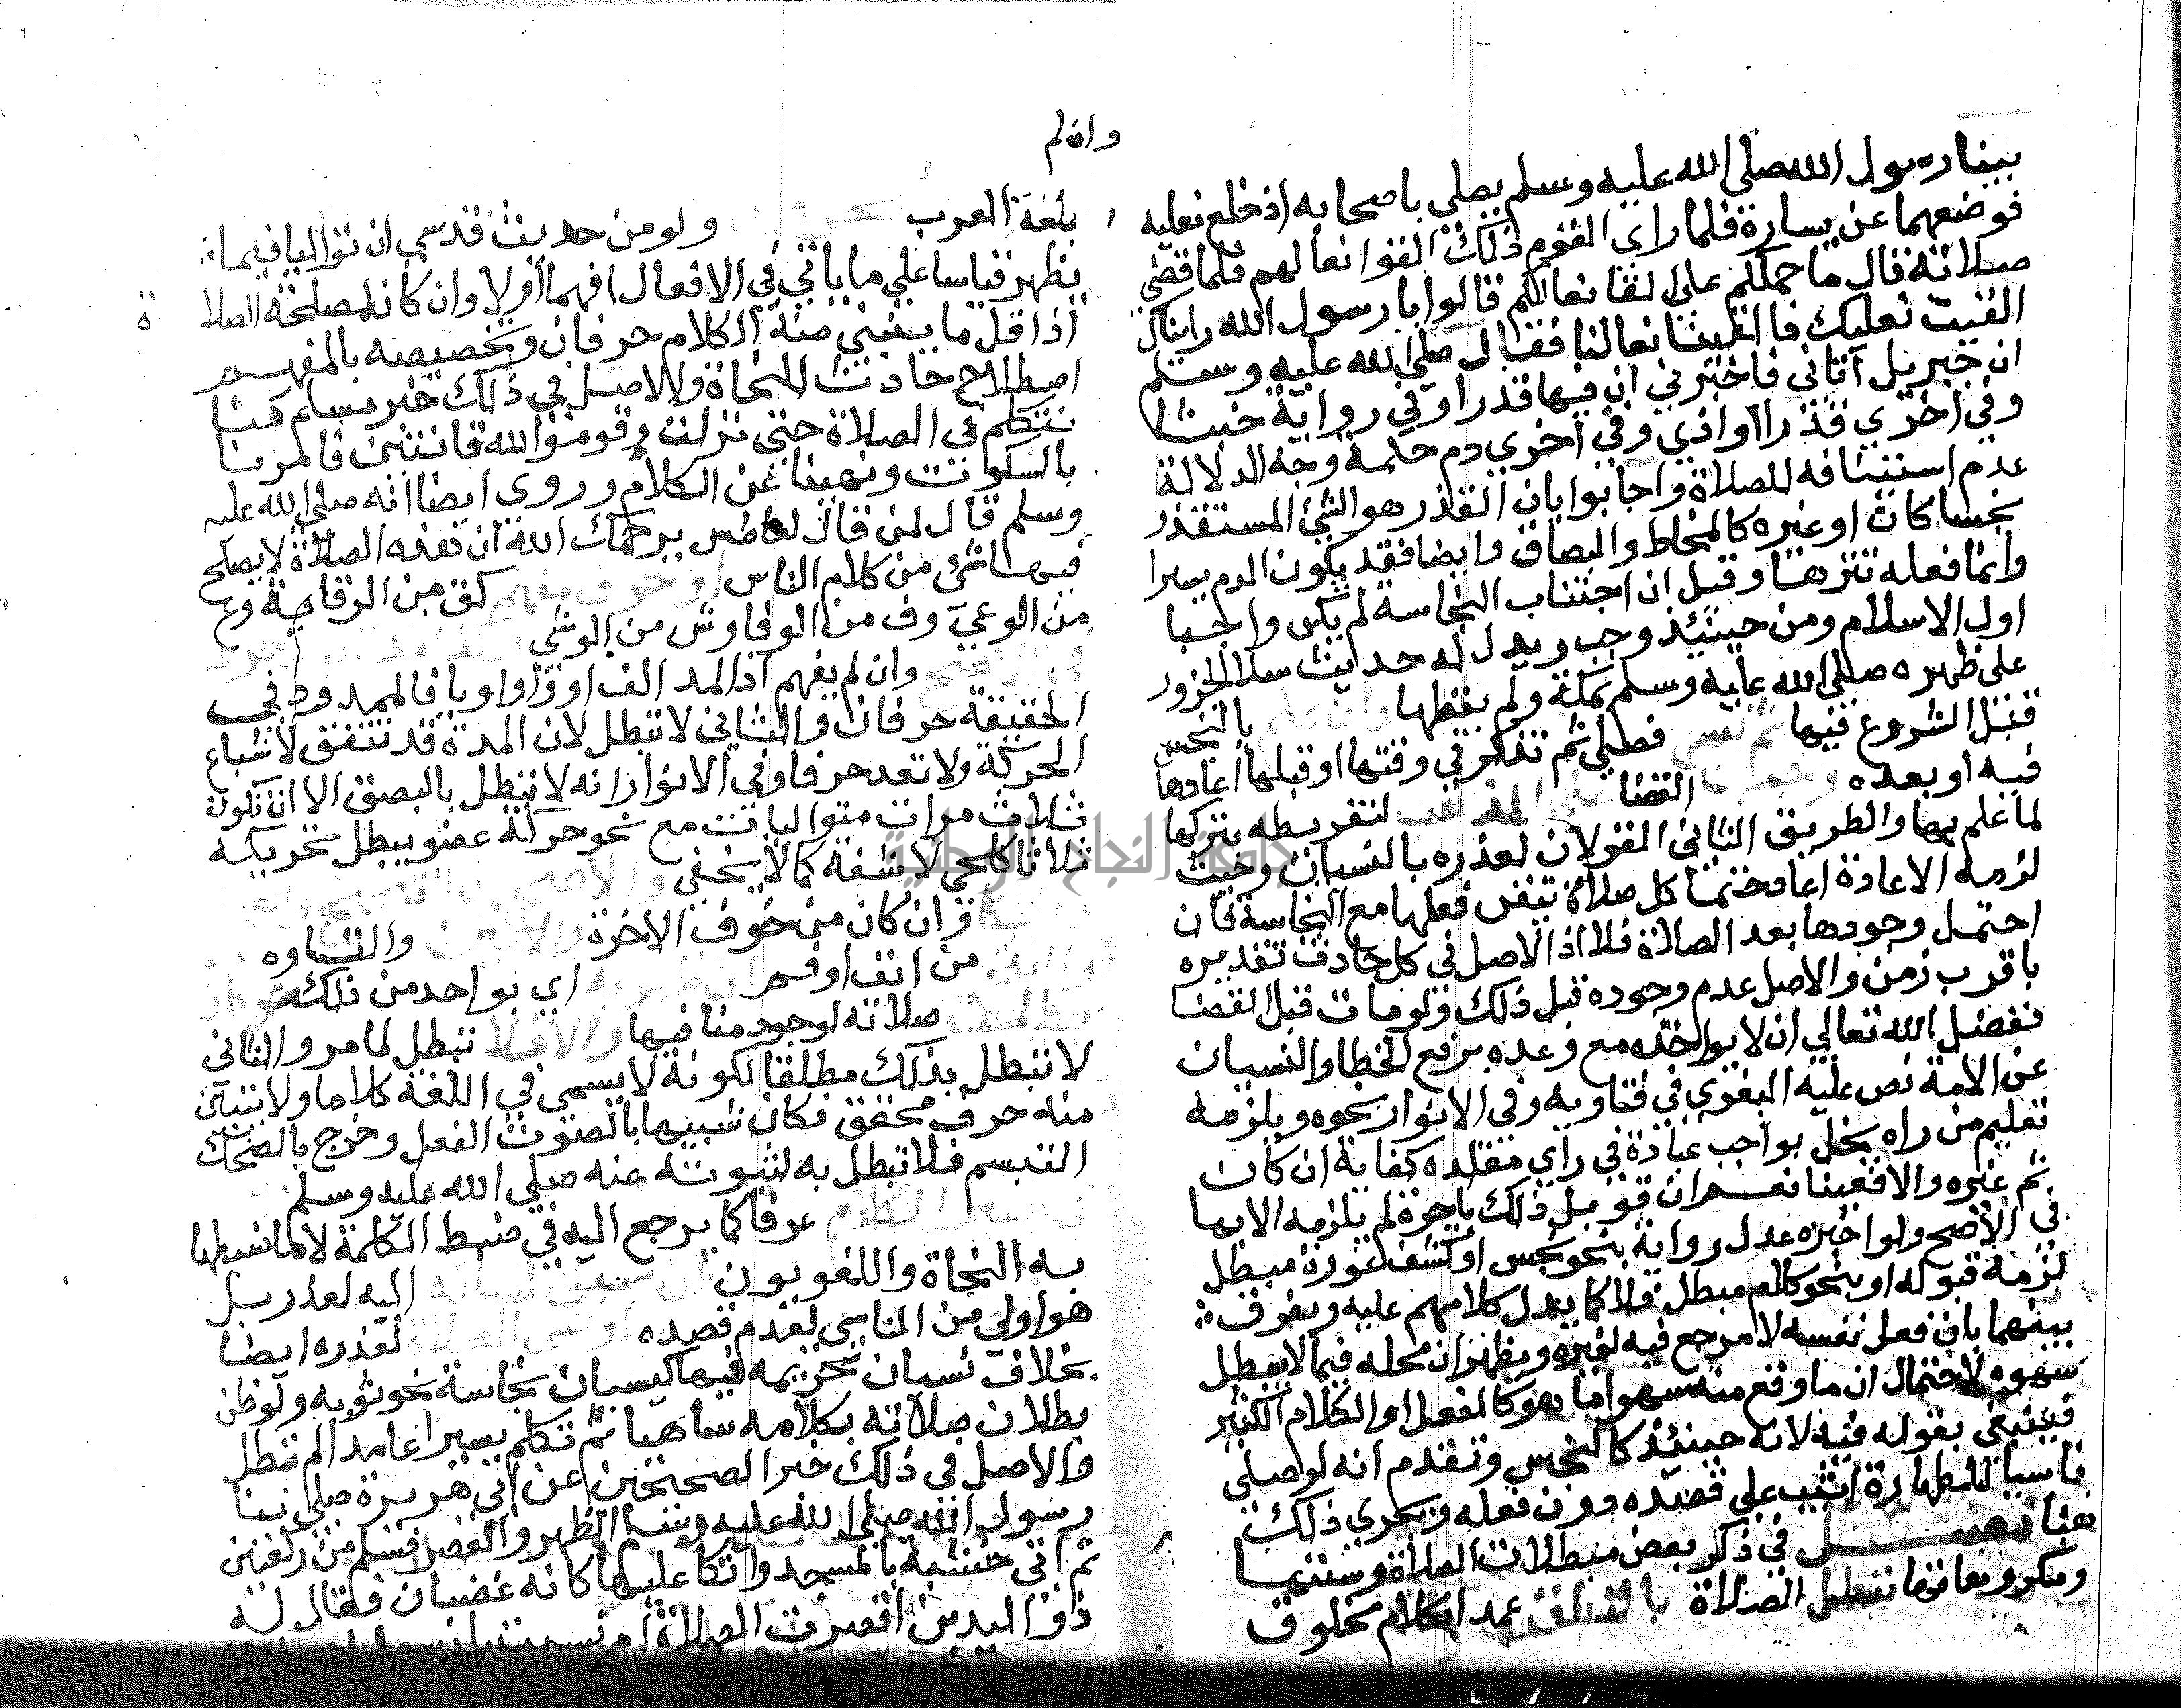 بينا رسول الله صلى الله عليه وسلم يصلي باصحابه اذ خلع نعليه
فوضعهما عن يساره فلما راى القوم ذلك القوا نعالهم فلما قضى
صلاته قال ما حملكم على القا نعالكم قالوا يا رسول الله رايناك
القيت نعليك فالقينا نعالنا فقال صلى الله عليه وسلم
ان جبريل آتاني فاخبرني ان فيها قذرا وفي رواية خبثا
وفي اخرى قذرا او اذي وفي اخري دم حلمة وجه الدلالة
عدم استئنافه للصلاة واجابوا بان القذر هو الشئ المستقذر
نجسا كان او غيره كالمخاط والبصاق وايضا فقد يكون الدم يسيرا
وانما فعله تنزها وقيل ان اجتناب النجاسة لم يكن واجبا
اول الاسلام ومن حينئذ وجب ويدل له حديث سلا الجزور
على ظهره صلى الله عليه وسلم بمكة ولم يقطها بالنجس
قبل الشروع فيها ثم نسي فصلي ثم تذكر في وقتها او قبلها اعادها
فيه او بعده القضا لتفريطه بتركها
لما علم بها والطريق الثاني القولان لعذره بالنسيان وحيث
لزمه الاعادة اعاد حتما كل صلاة تيقن فعلها مع النجاسة فان
احتمل وجودها بعد الصلاة فلا اذ الاصل في كل حادث تقديره
باقرب زمن والاصل عدم وجوده قبل ذلك ولو مات قبل القضا
تفضل الله تعالي ان لا يواخذه مع وعده برفع الخطا والنسيان
عن الامة نص عليه البغوي في فتاويه وفي الانوار نحوه ويلزمه
تعليم من راه يخل بواجب عبادة في راي مقلده كفاية ان كان
ثم غيره والا فعينا نعم ان قوبل ذلك باجرة لم يلزمه الا بها
في الاصح ولو اخبره عدل رواية بنحو نجس او كشف عورة مبطل
لزمه قبوله او بنحو كلام مبطل فلا كما يدل كلامهم عليه ويفرق
بينهما بان فعل نفسه لا مرجع فيه لغيره ويظهر ان محله فيما لا يبطل
سهوه لاحتمال ان ما وقع منه سهوا ما هو كالفعل او الكلام الكثير
فينبغي بقوله فيه لانه حينئذ كالنجس وتقدم انه لو صلى
ناسيا للطهارة اثيب علي قصده دون فعله ويجري ذلك
هنا فصل في ذكر بعض مبطلات الصلاة وسننها
ومكروهاتها تبطل الصلاة بالنطق عمدا بكلام مخلوق
وان لم
بلغة العرب ولو من حديث قدسي ان تواليا فيما
يظهر قياسا علي ما ياتي في الافعال افهما اولا وان كانا لمصلحة الصلاة
اذ اقل ما يبني منه الكلام حرفان وتخصيصه بالمفهم
اصطلاح حادث للنحاة والاصل في ذلك خبر مسلم كنا
نتكلم في الصلاة حتى نزلت وقوموا لله قانتين فامرنا
بالسكوت ونهينا عن الكلام وروى ايضا انه صلى الله عليه
وسلم قال لمن قال لعاطس يرحمك الله ان هذه الصلاة لا يصلح
فيها شئ من كلام الناس كق من الوقاية وع
من الوعي وف من الوفا وش من الوشي
وان لم يفهم اذ المد الف او واو او يا فالممدود في
الحقيقة حرفان والثاني لا تبطل لان المدة قد تتفق لاشباع
الحركة ولا تعد حرفا وفي الانوار انه لا تبطل بالبصق الا ان تكون
ثلاث مرات متواليات مع نحو حركة عضو يبطل تحريكه
ثلاثا كلحي لا شفة كما لا يخفى
وان كان من خوف الاخرة والتاوه
من انف او فم اي بواحد من ذلك
صلاته لوجود منافيها والا فلا تبطل لما مر والثاني
لا تبطل بذلك مطلقا لكونه لا يسمى في اللغة كلاما ولا يتبين
منه حرف محقق فكان شبيها بالصوت الغفل وخرج بالضحك
التبسم فلا تبطل به لثبوته عنه صلي الله عليه وسلم
عرفا كما يرجع اليه في ضبط الكلمة لا لما ضبطها
به النحاة واللغويون اليه لعذره بل
هو اولي من الناسي لعدم قصده لعذره ايضا
بخلاف نسيان تحريمه فيها كنسيان نجاسة نحو ثوبه ولو ظن
بطلان صلاته بكلامه ساهيا ثم تكلم يسيرا عامدا لم تبطل
والاصل في ذلك خبر الصحيحين عن ابي هريرة صلى بنا
رسول الله صلى الله عليه وسلم الظهر او العصر فسلم من ركعتين
ثم اتى خشبة بالمسجد واتكا عليها كانه غضبان فقال له
ذو اليدين اقصرت الصلاة ام نسيت يا رسول
جامعة النجاح الوطنية